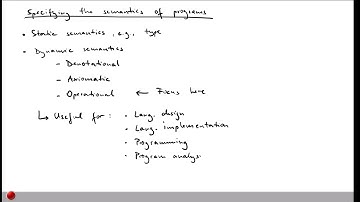 Specifying the semantics of programs
• Static semantics, e.g., type
• Dynamic semantics
– Denotational
– Axiomatic
– Operational ← Focus here
↳ Useful for : • Lang. design
• Lang. implementation
• Programming
• Program analysi